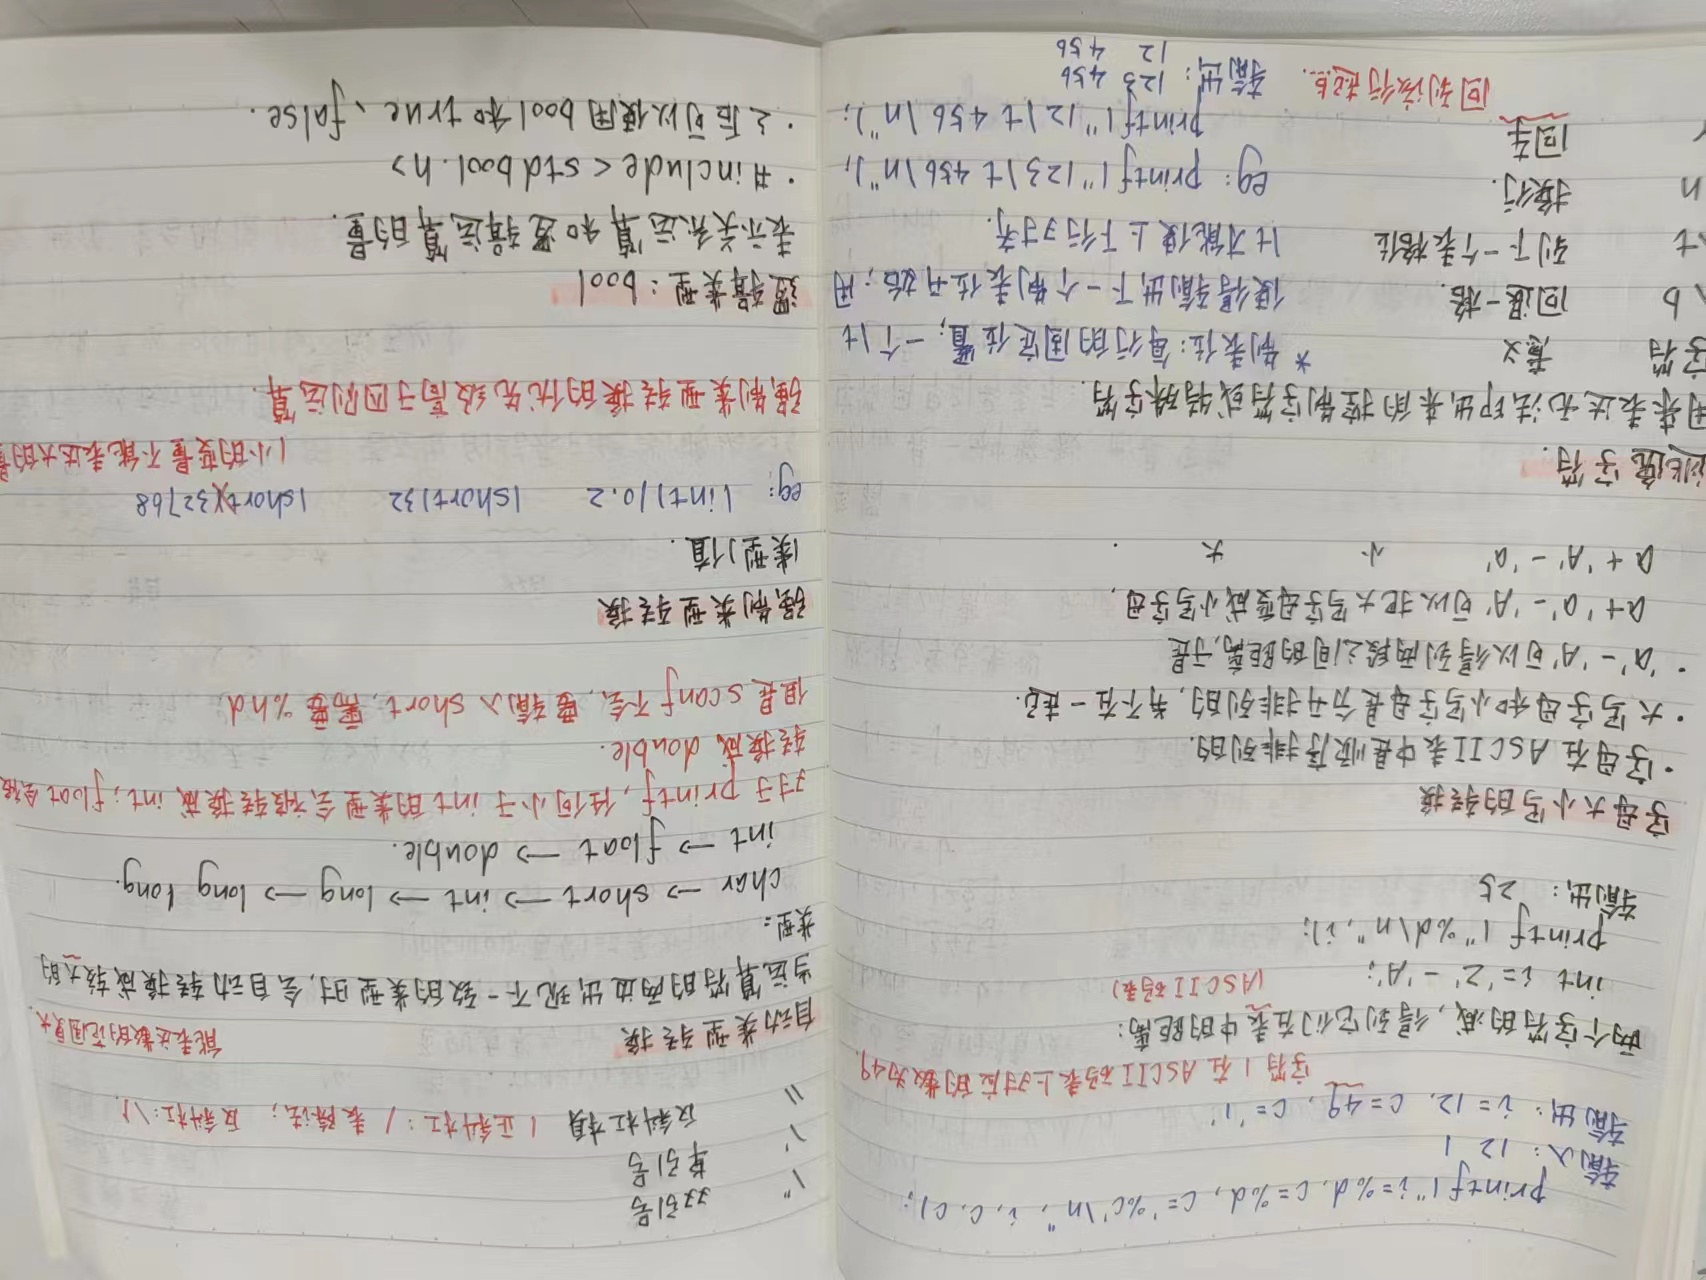 printf("i=%d, c=%d, c='%c'\n", i, c, c);
输入: 12 1
输出: i=12, c=49, c='1'
字符1在ASCII码表上对应的数为49.
两个字符的减, 得到它们在表中的距离:
(ASCII码表)
int i='Z'-'A';
printf("%d\n", i);
输出: 25
字母大小写的转换
·字母在ASCII表中是顺序排列的.
·大写字母和小写字母是分开排列的, 并不在一起.
·'a'-'A'可以得到两段之间的距离, 于是
a+'a'-'A'可以把大写字母变成小写字母,
a+'A'-'a' 小 大.
逃逸字符.
用来表达无法印出来的控制字符或特殊字符
字符 意义
\b 回退一格.
\t 到下一个表格位
n 换行.
回车
回到该行起点.
*制表位: 每行的固定位置; 一个\t
使得输出下一个制表位开始; 用
\t才能使上下行对齐.
eg: printf("123\t456\n");
printf("12\t456\n");
输出: 123 456
12 456
\" 双引号
\' 单引号
\\ 反斜杠本身 (正斜杠: / 表除法; 反斜杠: \)
自动类型转换 能表达数的范围更大.
当运算符的两边出现不一致的类型时, 会自动转换成较大的
类型:
char → short → int → long → long long.
int → float → double.
对于printf, 任何小于int的类型会被转换成int; float会被
转换成double.
但是scanf不会, 要输入short, 需要%hd
强制类型转换
(类型)值.
eg: (int)10.2 (short)32 (short)32768
(小的变量不能表达大的量
强制类型转换的优先级高于四则运算.
逻辑类型: bool
表示关系运算和逻辑运算的量
·#include <stdbool.h>
·之后可以使用bool和true、false.